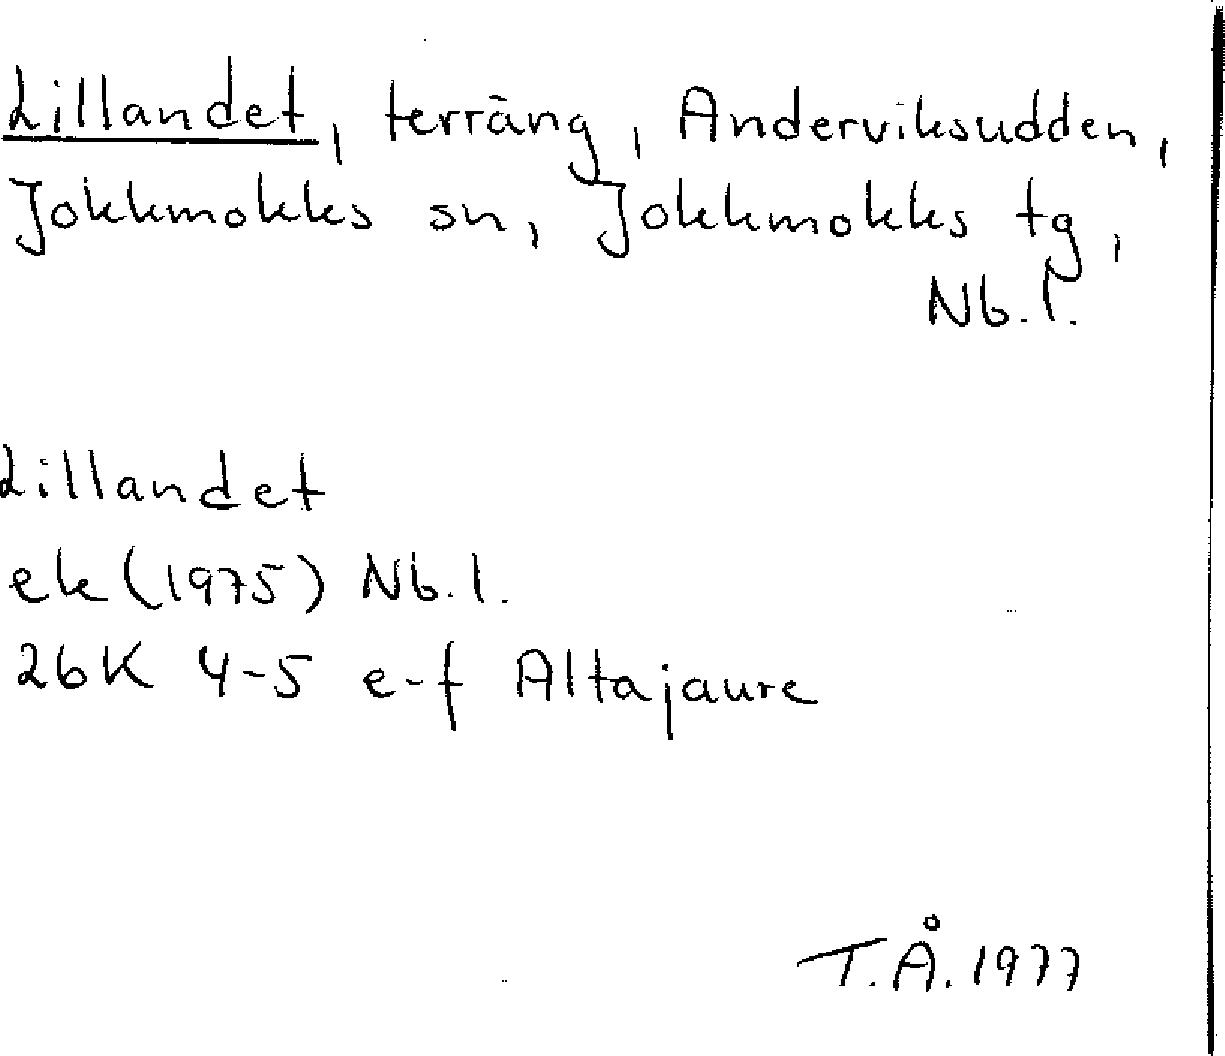 Lillandet, terräng, Anderviksudden,
Jokkmokks sn, Jokkmokks tg,
Nb.l.
Lillandet
ek (1975) Nb.l.
26K 4-5 e-f Altajaure
T.Å. 1977